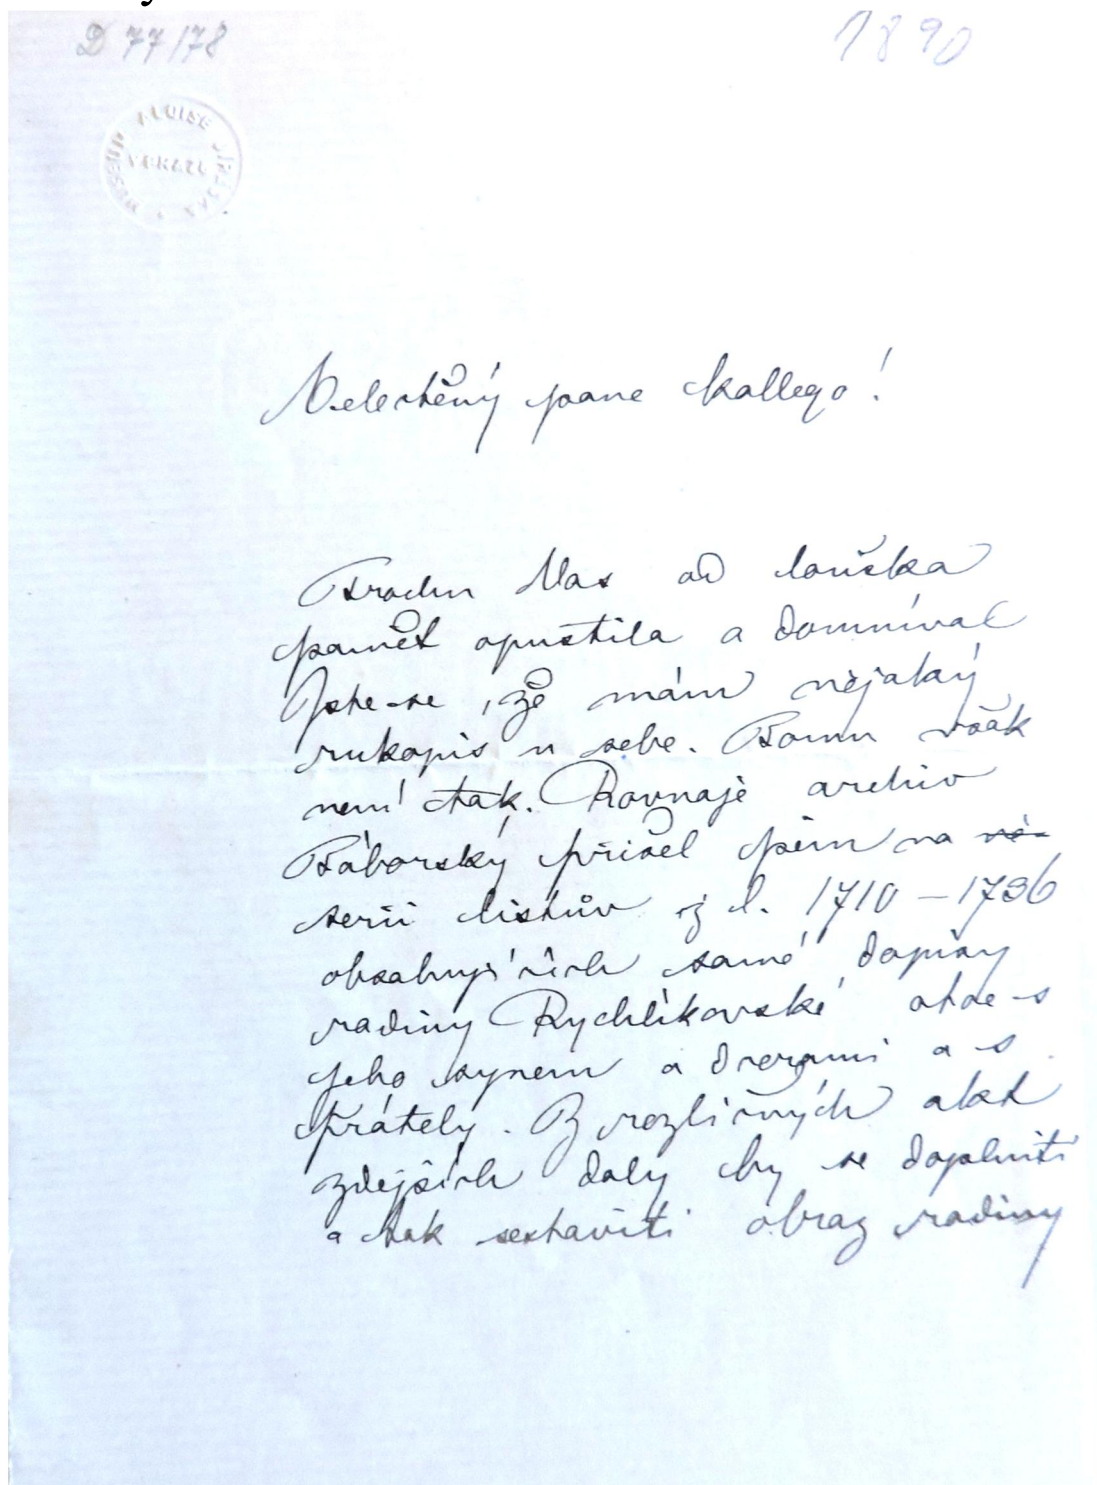 D 77/78
1890
MUSEUM ALOISE JIRÁSKA
Velectěný pane kollego!
Trochu Vas od loňska
paměť opustila a domníval
Jste-se, že mám nějaký
rukopis u sebe. Tomu však
není tak. Rovnaje archiv
Táborský přišel jsem na
serii listův z l. 1710 – 1736
obsahujících samé dopisy
rodiny Rychlíkovské otce s
jeho synem a dcerami a s
přátely. Z rozličných akt
zdejších daly by se doplniti
a tak sestaviti obraz rodiny